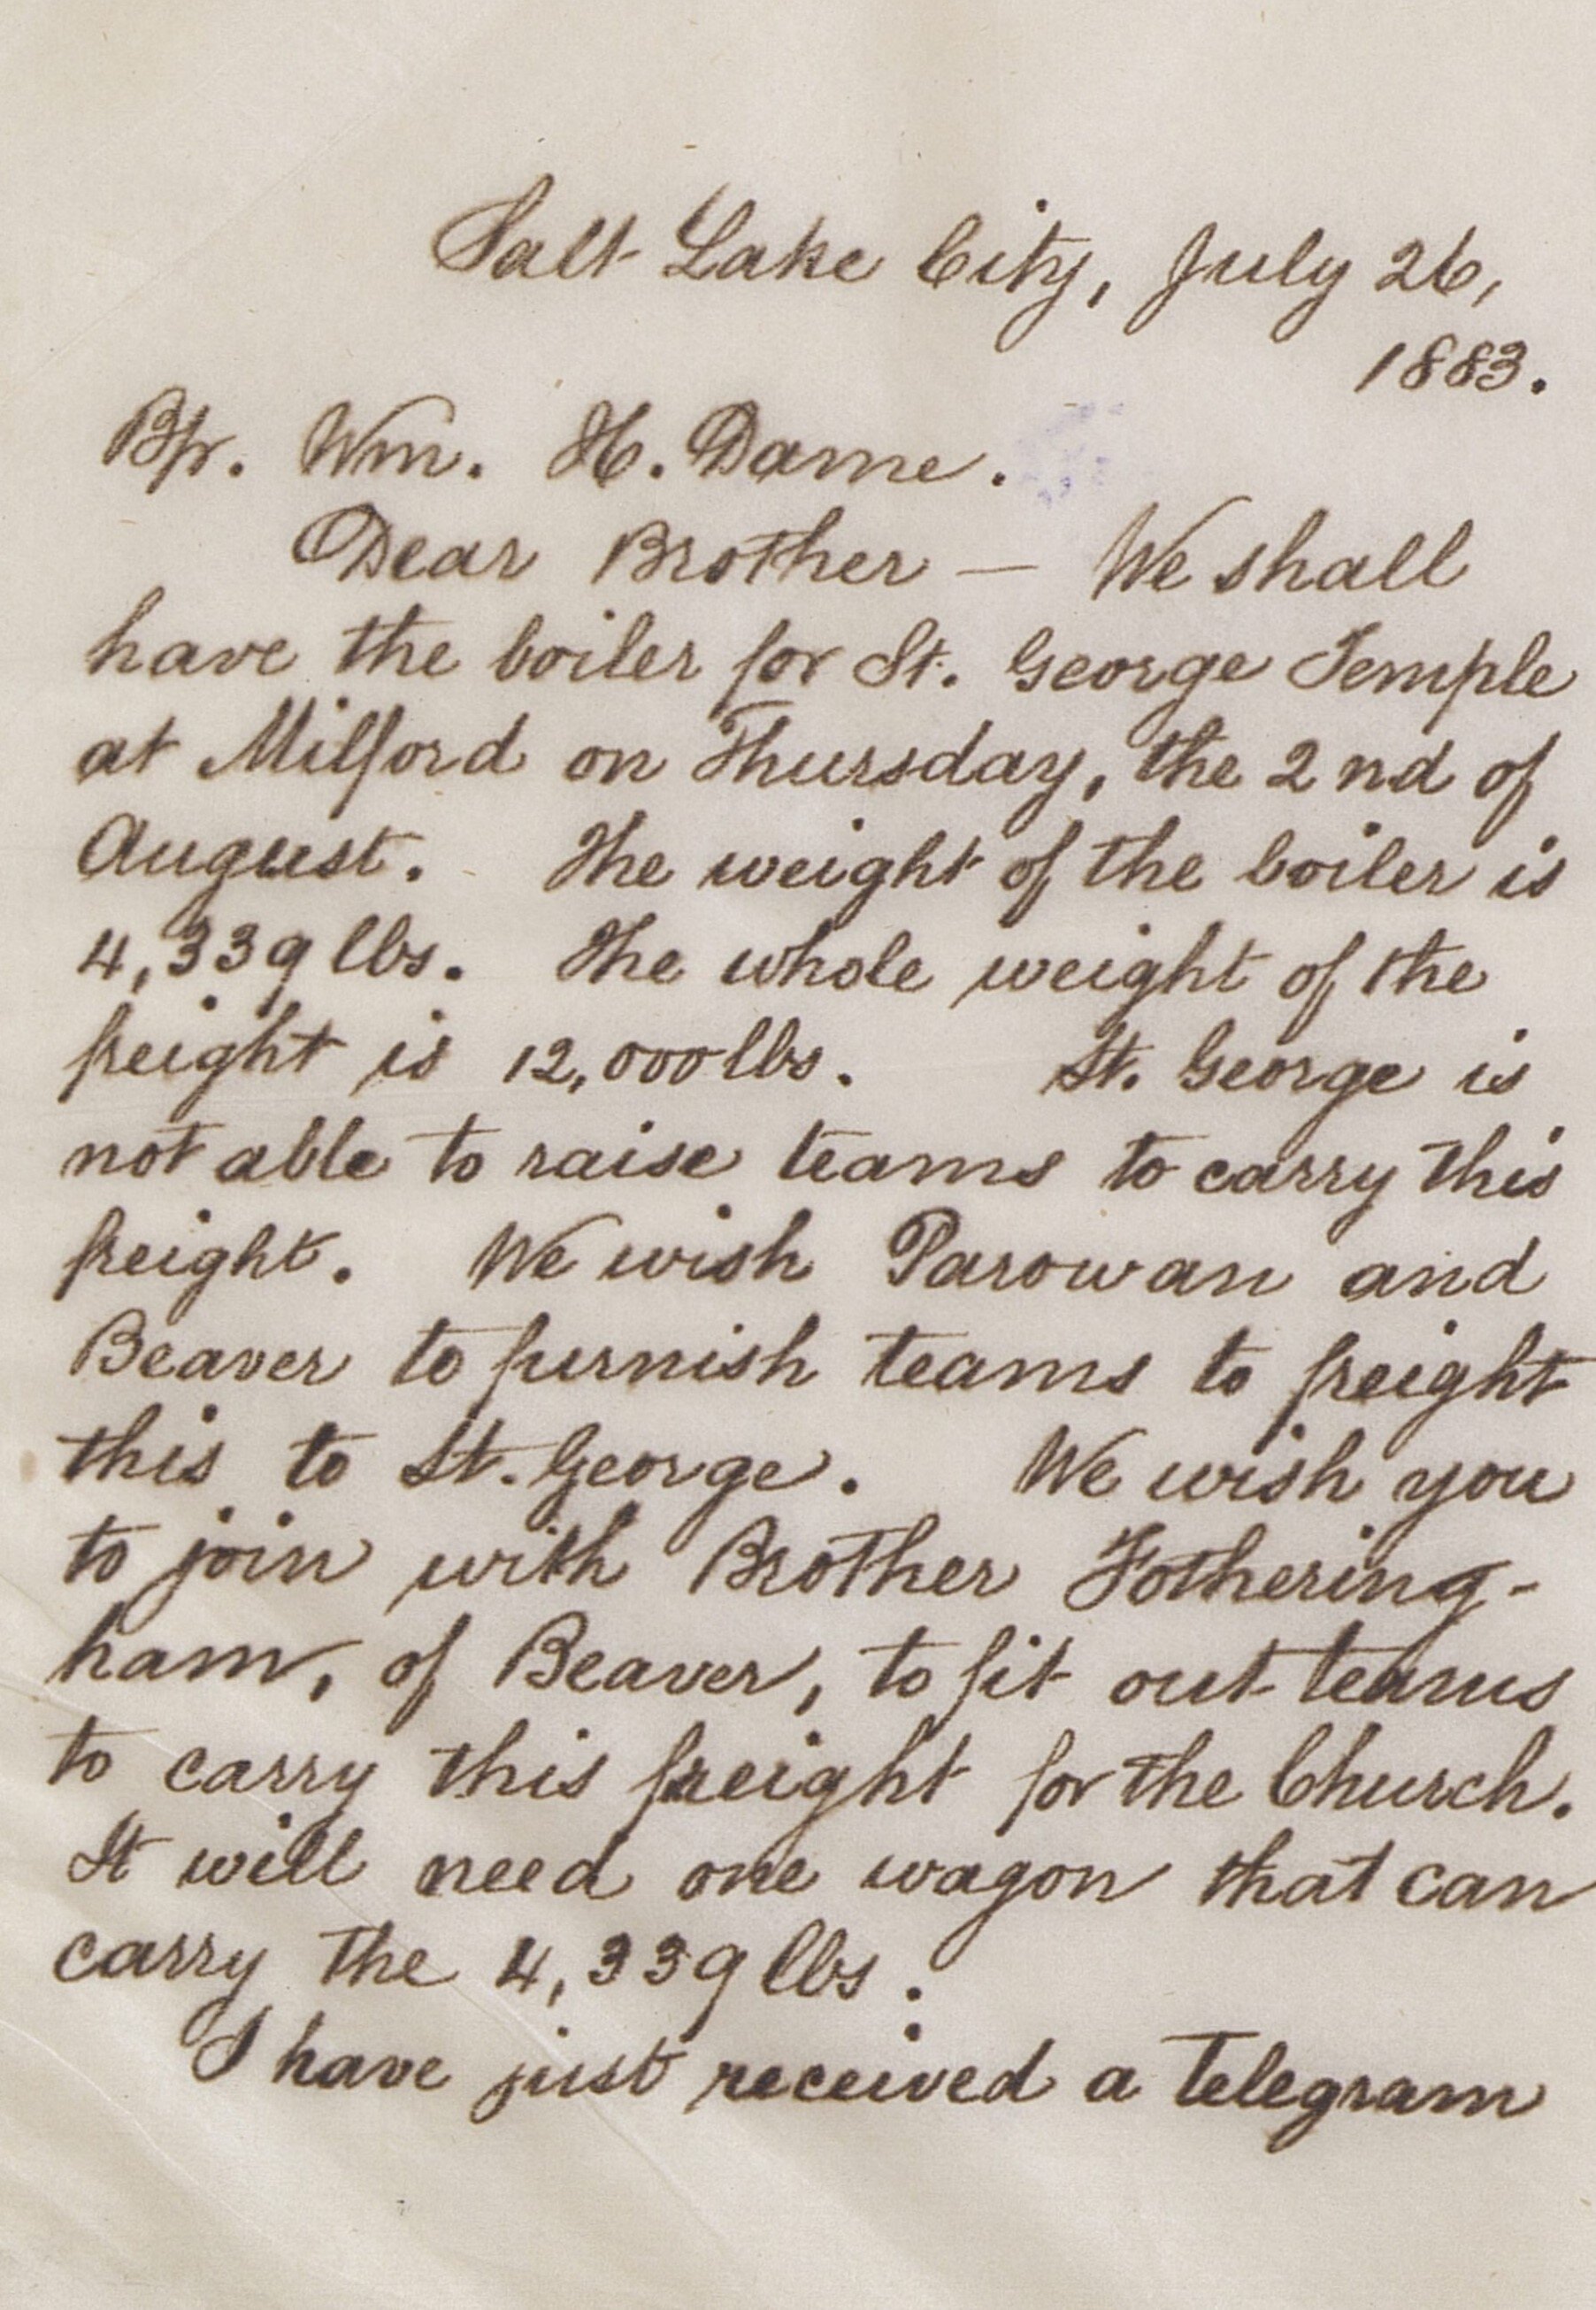 Salt Lake City, July 26,
1883.
Bp. Wm. H. Dame.
Dear Brother — We shall
have the boiler for St. George Temple
at Milford on Thursday, the 2nd of
August. The weight of the boiler is
4,339 lbs. The whole weight of the
freight is 12,000 lbs. St. George is
not able to raise teams to carry this
freight. We wish Parowan and
Beaver to furnish teams to freight
this to St. George. We wish you
to join with Brother Fothering-
ham, of Beaver, to fit out teams
to carry this freight for the Church.
It will need one wagon that can
carry the 4,339 lbs.
I have just received a telegram